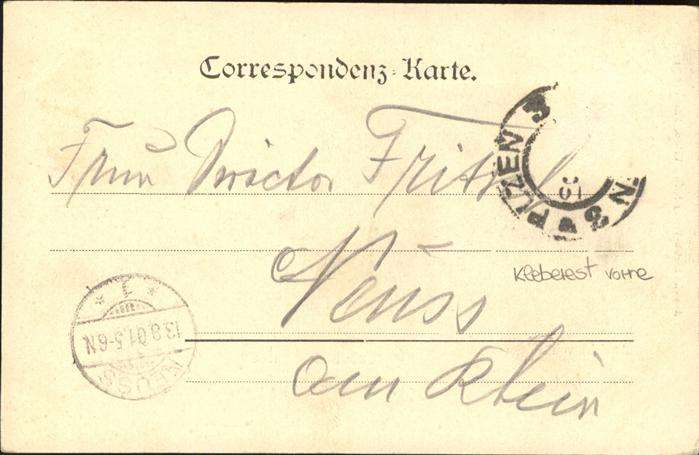 Correspondenz-Karte.
Frau Director Fritz
PLZEN 3
Neuss
Kleberest vorne
13.8.01.5-6N
NEUSS
am Rhein